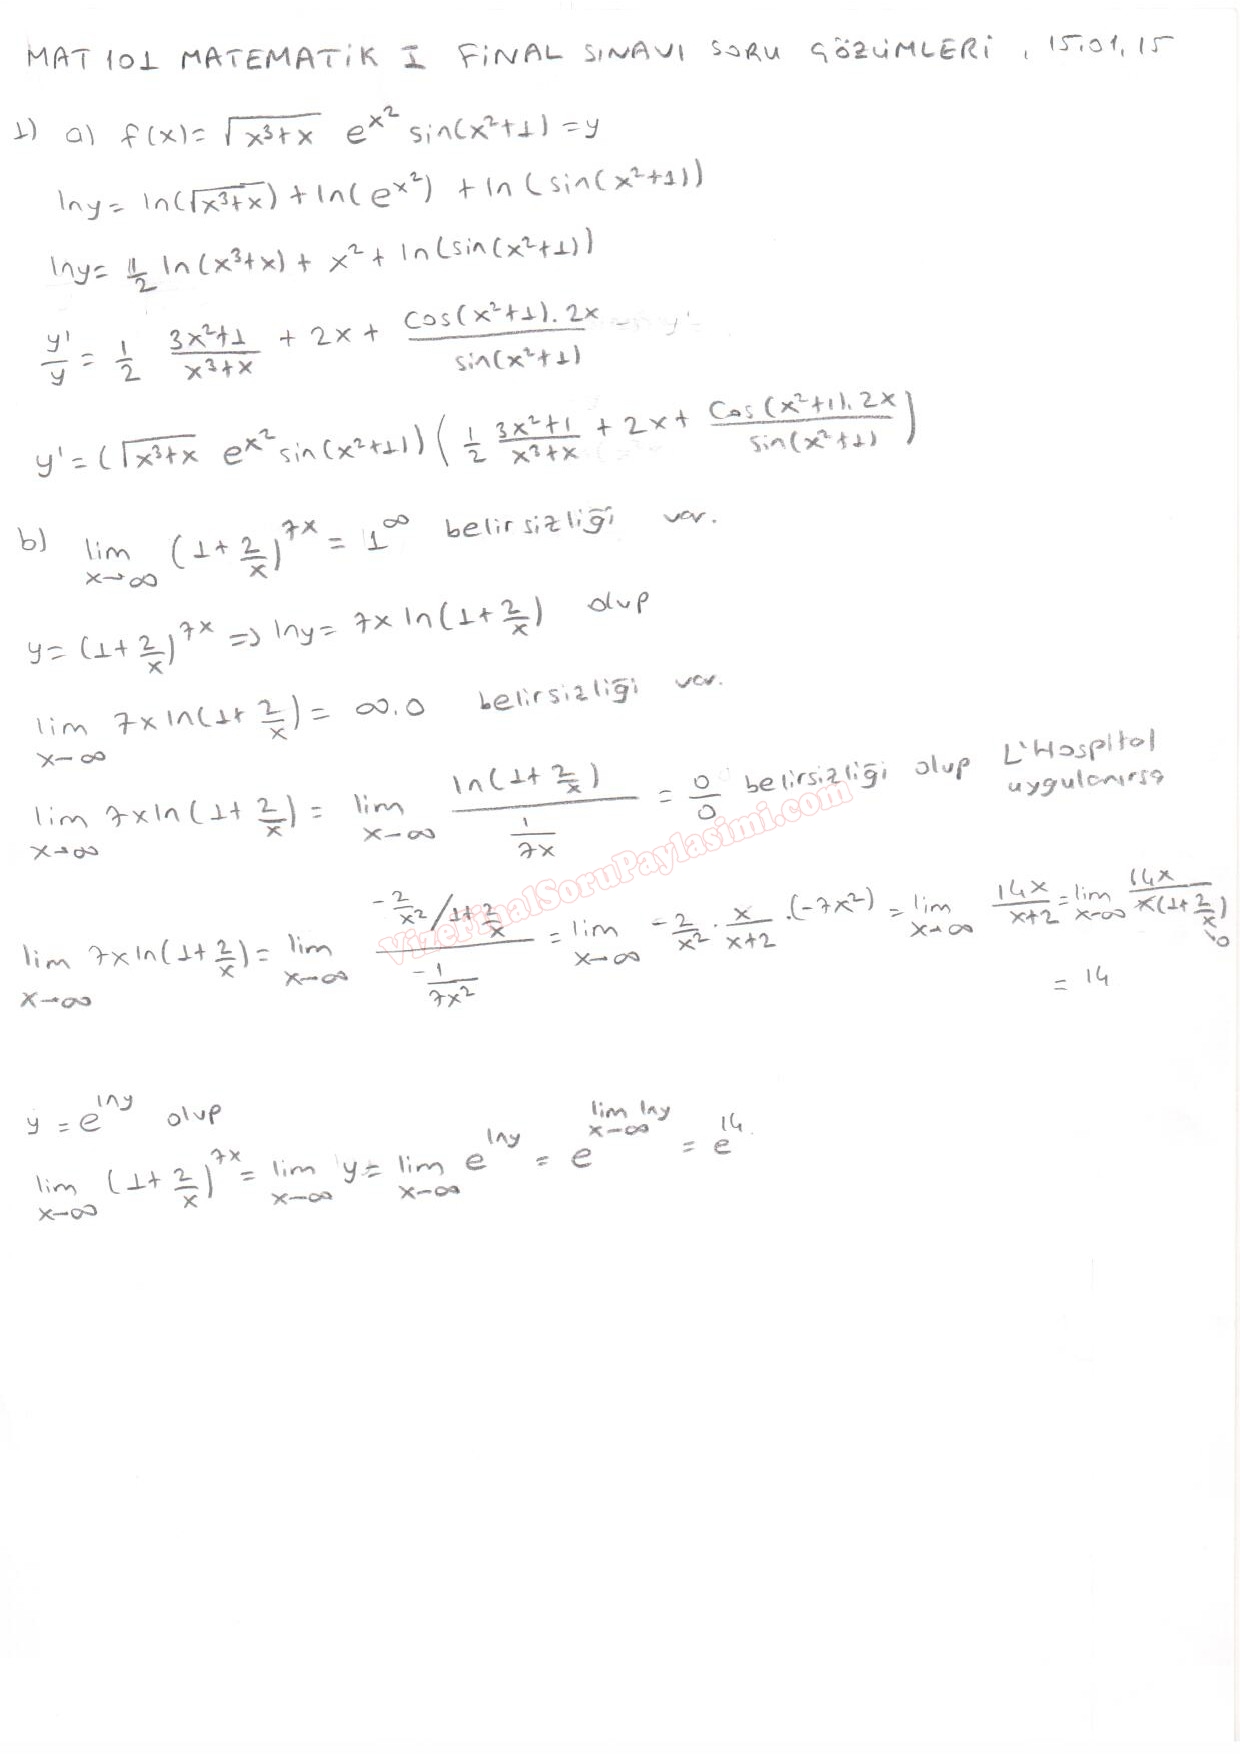 MAT 101 MATEMATİK I FİNAL SINAVI SORU ÇÖZÜMLERİ, 15.01.15
1) a) f(x) = √(x³+x) e^(x²) sin(x²+1) = y
lny = ln(√(x³+x)) + ln(e^(x²)) + ln(sin(x²+1))
lny = 1/2 ln(x³+x) + x² + ln(sin(x²+1))
y'/y = 1/2 (3x²+1)/(x³+x) + 2x + (cos(x²+1).2x)/(sin(x²+1))
y' = (√(x³+x) e^(x²) sin(x²+1)) (1/2 (3x²+1)/(x³+x) + 2x + (Cos(x²+1).2x)/(sin(x²+1)))
b) lim x→∞ (1+2/x)^(7x) = 1^∞ belirsizliği var.
y = (1+2/x)^(7x) => lny = 7x ln(1+2/x) olup
lim x→∞ 7x ln(1+2/x) = ∞.0 belirsizliği var.
lim x→∞ 7x ln(1+2/x) = lim x→∞ (ln(1+2/x))/(1/7x) = 0/0 belirsizliği olup L'Hospital uygulanırsa
lim x→∞ 7x ln(1+2/x) = lim x→∞ (-2/x² / 1+2/x)/(-1/7x²) = lim x→∞ -2/x² . x/(x+2) .(-7x²) = lim x→∞ 14x/(x+2) = lim x→∞ 14x/(x(1+2/x)) →0
= 14
y = e^(lny) olup
lim x→∞ (1+2/x)^(7x) = lim x→∞ y = lim x→∞ e^(lny) = e^(lim x→∞ lny) = e^14.
VizeFinalSoruPaylasimi.com